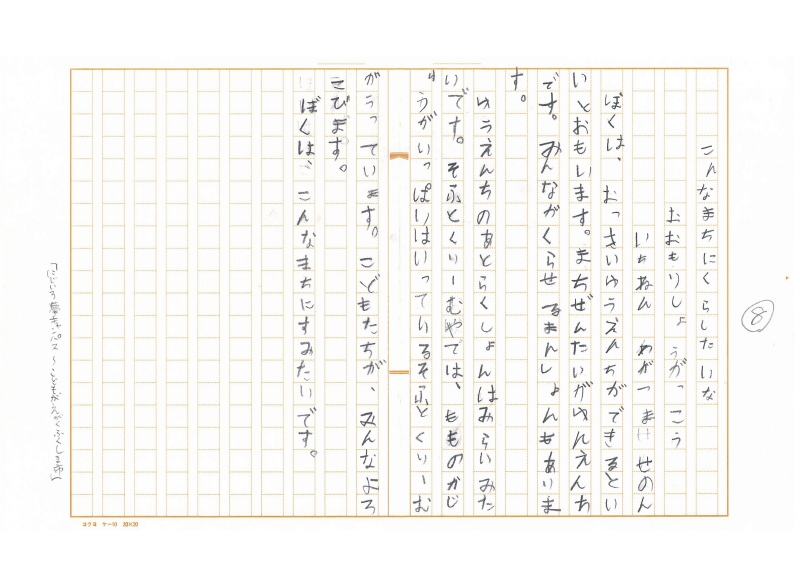 ⑧
こんなまちにくらしたいな
おおもりしょうがっこう
いちねん わがつま けせのん
ぼくは、おっきいゆうえんちができるとい
いとおもいます。まちぜんたいがゆんえんち
です。みんながくらせるまんしょんもあいま
す。
ゆうえんちのあとらくしょんはみらいみた
いです。そふとくりーむやでは、もものかじ
うがいっぱいはいっているそふとくりーむ
がうっています。こどもたちが、みんなよろ
こびます。
ぼくは、こんなまちにすみたいです。
コクヨ ケ-10 20×20